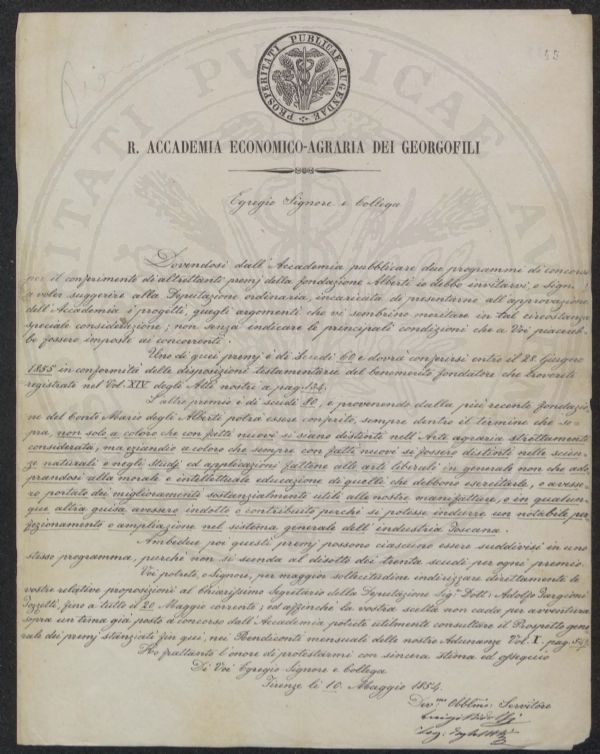 55
PROSPERITATI PUBLICAE AUGENDAE
R. ACCADEMIA ECONOMICO-AGRARIA DEI GEORGOFILI
Egregio Signore e Collega
Dovendosi dall'Accademia pubblicare due programmi di concorso
per il conferimento di altrettanti premj della fondazione Alberti io debbo invitarvi, o Sign.
a voler suggerire alla Deputazione ordinaria, incaricata di presentarne all'approvazione
dell'Accademia i progetti, quegli argomenti che vi sembrino meritare in tal circostanza
speciale considerazione; non senza indicare le principali condizioni che a Voi piacereb-
be fossero imposte ai concorrenti.
Uno di quei premj è di Scudi 60 e dovrà conferirsi entro il 28 Giugno
1855 in conformità delle disposizioni testamentarie del benemerito fondatore che troverete
registrate nel Vol. XIV. degli Atti nostri a pag. 184.
L'altro premio è di scudi 90, e provenendo dalla più recente fondazio-
ne del Conte Mario degli Alberti potrà essere conferito, sempre dentro il termine che so-
pra, non solo a coloro che con fatti nuovi si siano distinti nell'Arte agraria strettamente
considerata, ma eziandio a coloro che sempre con fatti nuovi si fossero distinti nelle scien-
ze naturali e negli Studj ed applicazioni fattene alle arti liberali in generale non che ado-
prandosi alla morale e intellettuale educazione di quelli che debbono esercitarle, o avesse-
ro portato dei miglioramenti sostanzialmente utili alle nostre manifatture, o in qualun-
que altra guisa avessero indotto o contribuito perchè si potesse indurre un notabile per-
fezionamento o ampliazione nel sistema generale dell'industria Toscana.
Ambedue poi questi premj possono ciascuno essere suddivisi in uno
stesso programma, perchè non si scenda al disotto dei trenta scudi per ogni premio.
Voi potrete, o Signore, per maggior sollecitudine indirizzare direttamente le
vostre relative proposizioni al chiarissimo Segretario della Deputazione Sigr. Dott: Adolfo Targioni
Tozzetti, fino a tutto il 20 Maggio corrente; ed affinchè la vostra scelta non cada per avventura
sopra un tema già posto a concorso dall'Accademia potrete utilmente consultare il Prospetto gene-
rale dei premj stanziati fin qui, nei Rendiconti mensuali delle nostre Adunanze Vol. I, pag.
Ho frattanto l'onore di protestarmi con sincera stima ed ossequio
Di Voi Egregio Signore e Collega
Firenze li 10. Maggio 1854.
Devmo Obblmo: Servitore